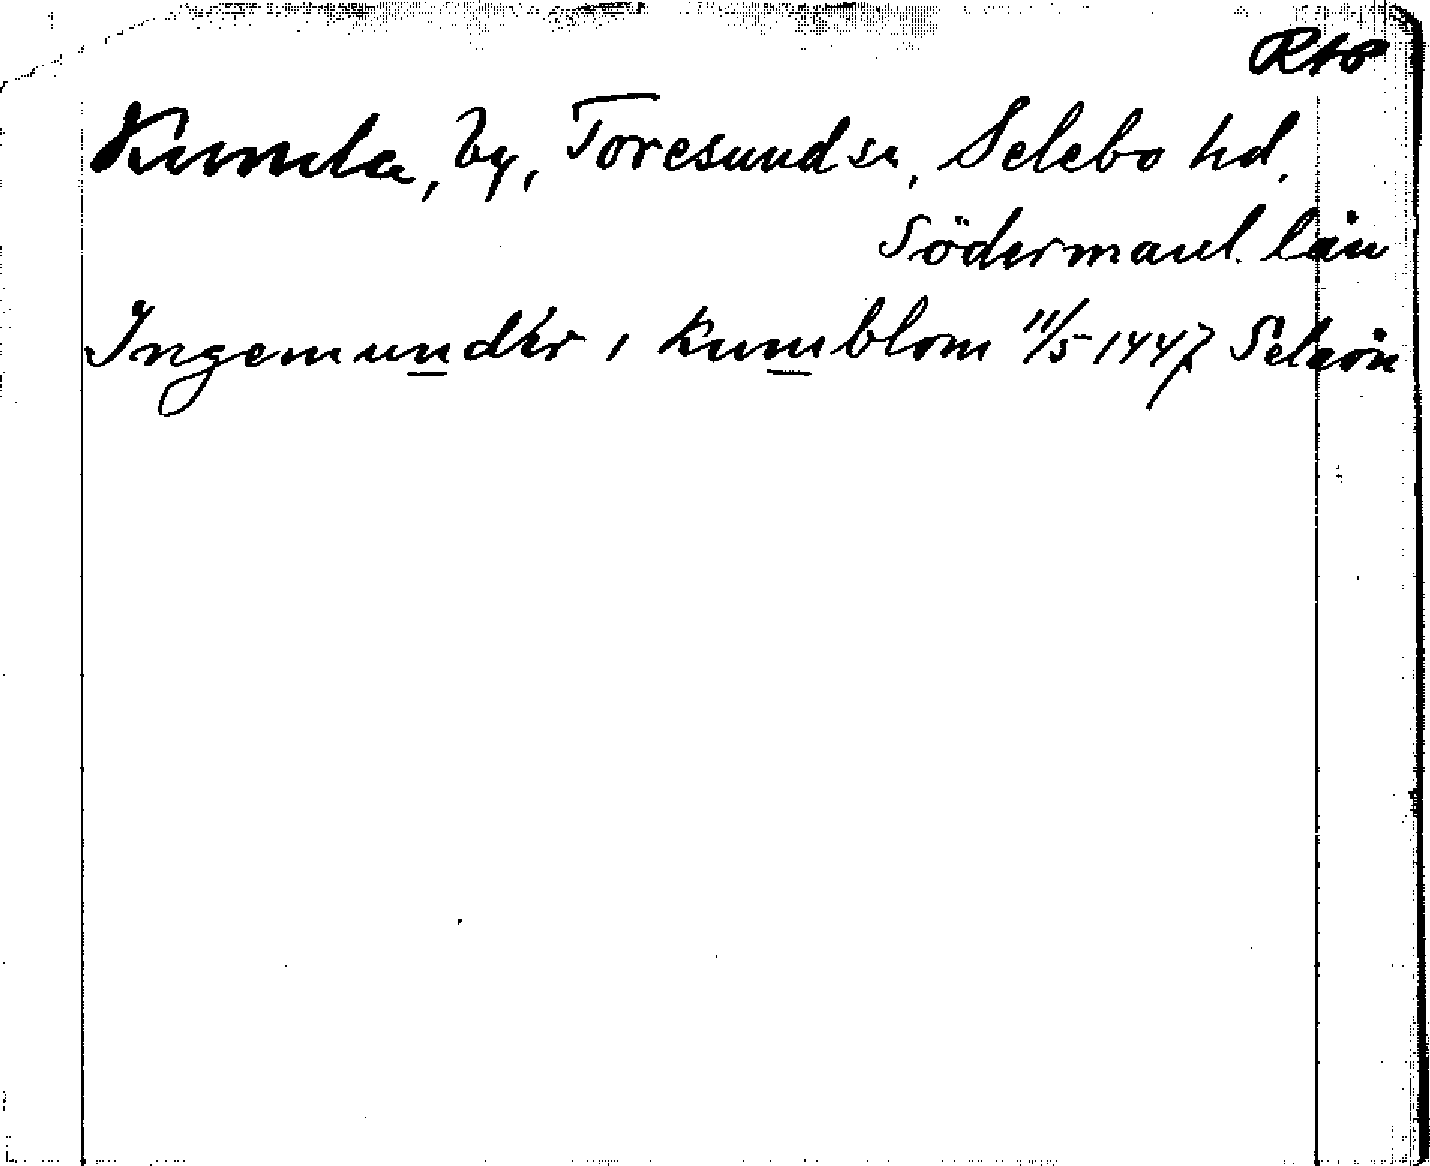 RAP
Kumla, by, Toresunds sn, Selebo hd,
Södermanl. län
Ingemundir i Kumblom 11/5 1447 Selaön